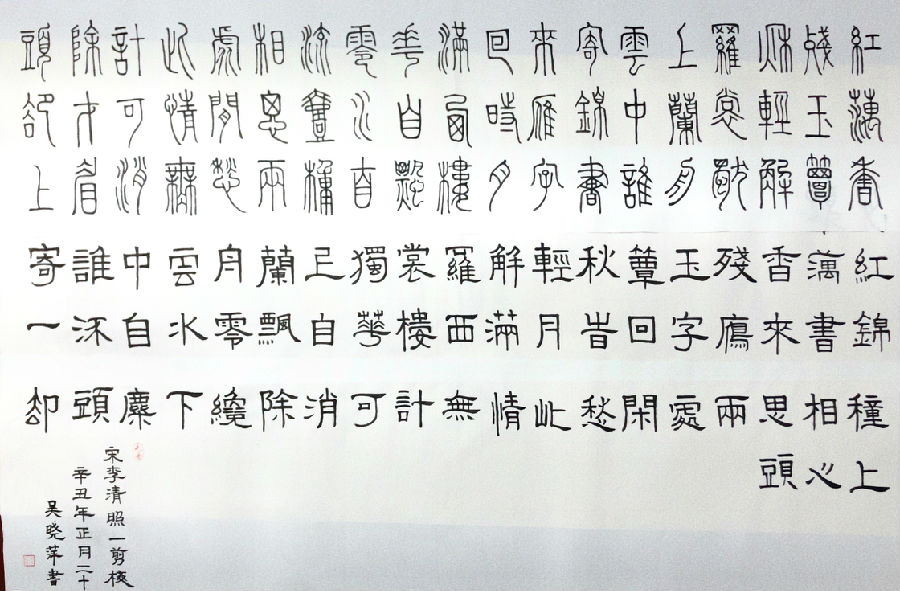 紅藕香
殘玉簟
秋輕解
羅裳獨
上蘭舟
雲中誰
寄錦書
來雁字
回時月
滿西樓
華自飄
零水自
流壹種
相思兩
處閒愁
此情無
計可消
除才眉
頭卻上
紅蕅香殘玉簟秋輕解羅裳獨上蘭舟雲中誰寄
錦書來鴈字回旹月滿西樓華自飄零水自流一
種相思兩處閑愁此情無計可消除纔下麋頭却
上心頭
宋李清照一剪梅
辛丑年正月二十
吴晓萍書